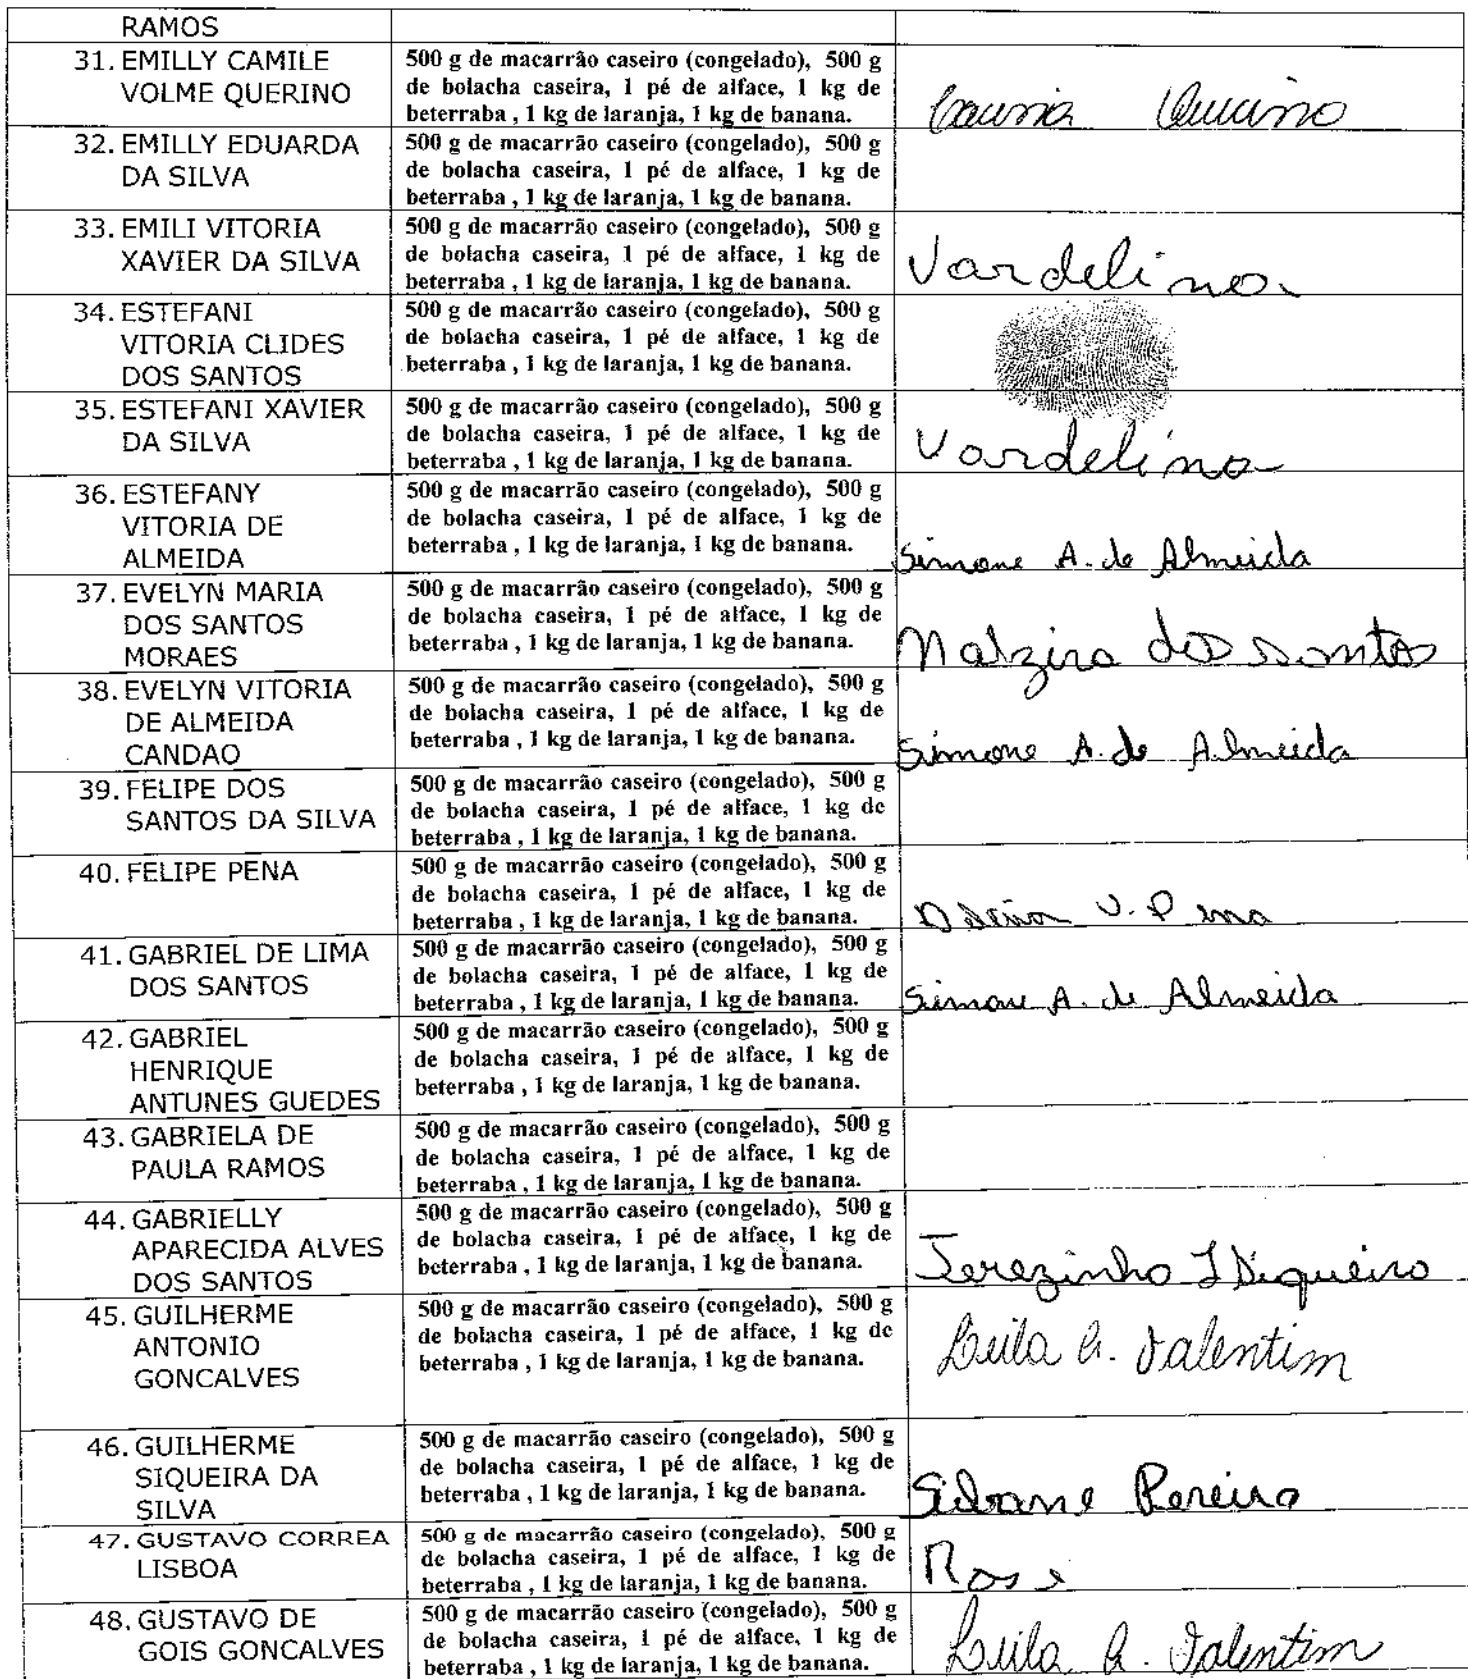 RAMOS
31. EMILLY CAMILE
VOLME QUERINO
500 g de macarrão caseiro (congelado), 500 g
de bolacha caseira, 1 pé de alface, 1 kg de
beterraba , 1 kg de laranja, 1 kg de banana.
32. EMILLY EDUARDA
DA SILVA
500 g de macarrão caseiro (congelado), 500 g
de bolacha caseira, 1 pé de alface, 1 kg de
beterraba , 1 kg de laranja, 1 kg de banana.
33. EMILI VITORIA
XAVIER DA SILVA
500 g de macarrão caseiro (congelado), 500 g
de bolacha caseira, 1 pé de alface, 1 kg de
beterraba , 1 kg de laranja, 1 kg de banana.
Vardelina
34. ESTEFANI
VITORIA CLIDES
DOS SANTOS
500 g de macarrão caseiro (congelado), 500 g
de bolacha caseira, 1 pé de alface, 1 kg de
beterraba , 1 kg de laranja, 1 kg de banana.
35. ESTEFANI XAVIER
DA SILVA
500 g de macarrão caseiro (congelado), 500 g
de bolacha caseira, 1 pé de alface, 1 kg de
beterraba , 1 kg de laranja, 1 kg de banana.
Vardelina
36. ESTEFANY
VITORIA DE
ALMEIDA
500 g de macarrão caseiro (congelado), 500 g
de bolacha caseira, 1 pé de alface, 1 kg de
beterraba , 1 kg de laranja, 1 kg de banana.
Simone A. de Almeida
37. EVELYN MARIA
DOS SANTOS
MORAES
500 g de macarrão caseiro (congelado), 500 g
de bolacha caseira, 1 pé de alface, 1 kg de
beterraba , 1 kg de laranja, 1 kg de banana.
Nalzira dos Santos
38. EVELYN VITORIA
DE ALMEIDA
CANDAO
500 g de macarrão caseiro (congelado), 500 g
de bolacha caseira, 1 pé de alface, 1 kg de
beterraba , 1 kg de laranja, 1 kg de banana.
Simone A. de Almeida
39. FELIPE DOS
SANTOS DA SILVA
500 g de macarrão caseiro (congelado), 500 g
de bolacha caseira, 1 pé de alface, 1 kg de
beterraba , 1 kg de laranja, 1 kg de banana.
40. FELIPE PENA
500 g de macarrão caseiro (congelado), 500 g
de bolacha caseira, 1 pé de alface, 1 kg de
beterraba , 1 kg de laranja, 1 kg de banana.
V. Pena
41. GABRIEL DE LIMA
DOS SANTOS
500 g de macarrão caseiro (congelado), 500 g
de bolacha caseira, 1 pé de alface, 1 kg de
beterraba , 1 kg de laranja, 1 kg de banana.
Simone A. de Almeida
42. GABRIEL
HENRIQUE
ANTUNES GUEDES
500 g de macarrão caseiro (congelado), 500 g
de bolacha caseira, 1 pé de alface, 1 kg de
beterraba , 1 kg de laranja, 1 kg de banana.
43. GABRIELA DE
PAULA RAMOS
500 g de macarrão caseiro (congelado), 500 g
de bolacha caseira, 1 pé de alface, 1 kg de
beterraba , 1 kg de laranja, 1 kg de banana.
44. GABRIELLY
APARECIDA ALVES
DOS SANTOS
500 g de macarrão caseiro (congelado), 500 g
de bolacha caseira, 1 pé de alface, 1 kg de
beterraba , 1 kg de laranja, 1 kg de banana.
Terezinha J Siqueira
45. GUILHERME
ANTONIO
GONCALVES
500 g de macarrão caseiro (congelado), 500 g
de bolacha caseira, 1 pé de alface, 1 kg de
beterraba , 1 kg de laranja, 1 kg de banana.
Leila A. Valentim
46. GUILHERME
SIQUEIRA DA
SILVA
500 g de macarrão caseiro (congelado), 500 g
de bolacha caseira, 1 pé de alface, 1 kg de
beterraba , 1 kg de laranja, 1 kg de banana.
Silvane Pereira
47. GUSTAVO CORREA
LISBOA
500 g de macarrão caseiro (congelado), 500 g
de bolacha caseira, 1 pé de alface, 1 kg de
beterraba , 1 kg de laranja, 1 kg de banana.
Rose
48. GUSTAVO DE
GOIS GONCALVES
500 g de macarrão caseiro (congelado), 500 g
de bolacha caseira, 1 pé de alface, 1 kg de
beterraba , 1 kg de laranja, 1 kg de banana.
Leila A. Valentim